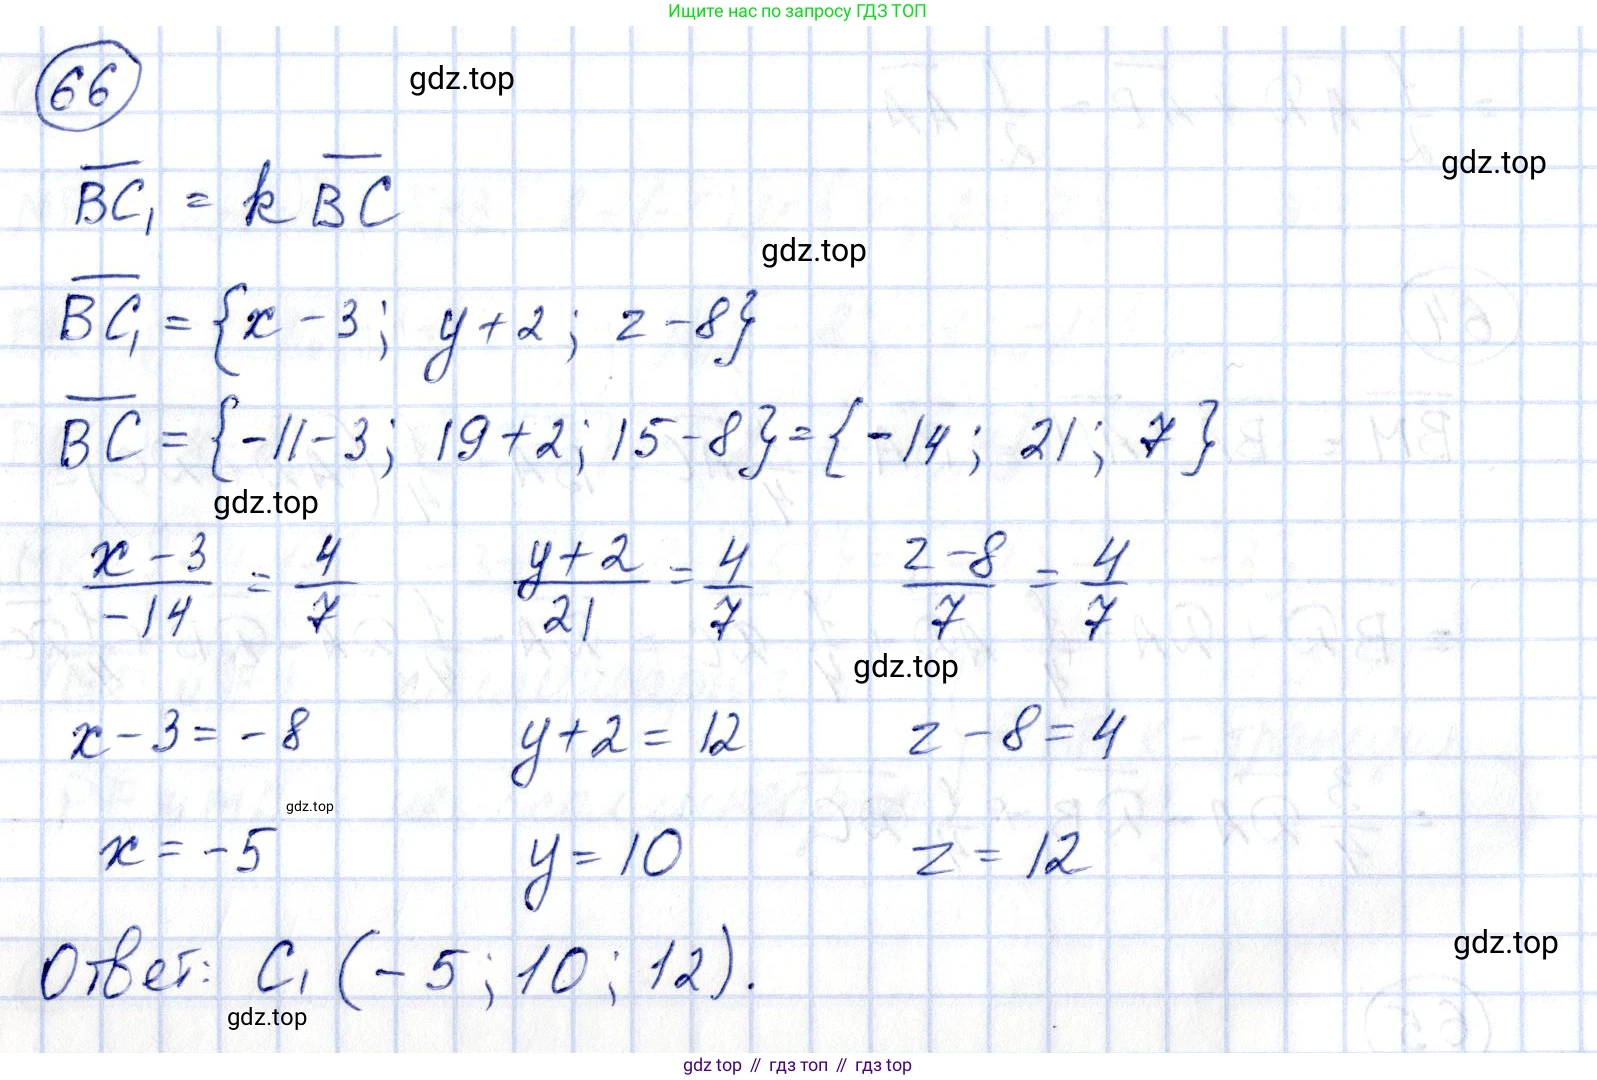 Ищите нас по запросу ГДЗ ТОП
66
gdz.top
gdz.top
BC₁ = k BC
gdz.top
BC₁ = {x - 3; y + 2; z - 8}
BC = {-11-3; 19+2; 15-8} = {-14; 21; 7}
gdz.top
(x - 3)/(-14) = 4/7 (y + 2)/21 = 4/7 (z - 8)/7 = 4/7
gdz.top
x - 3 = - 8 y + 2 = 12 z - 8 = 4
gdz.top
x = -5 y = 10 z = 12
gdz.top
Ответ: C₁ (-5; 10; 12).
gdz.top
gdz top // гдз топ // gdz.top